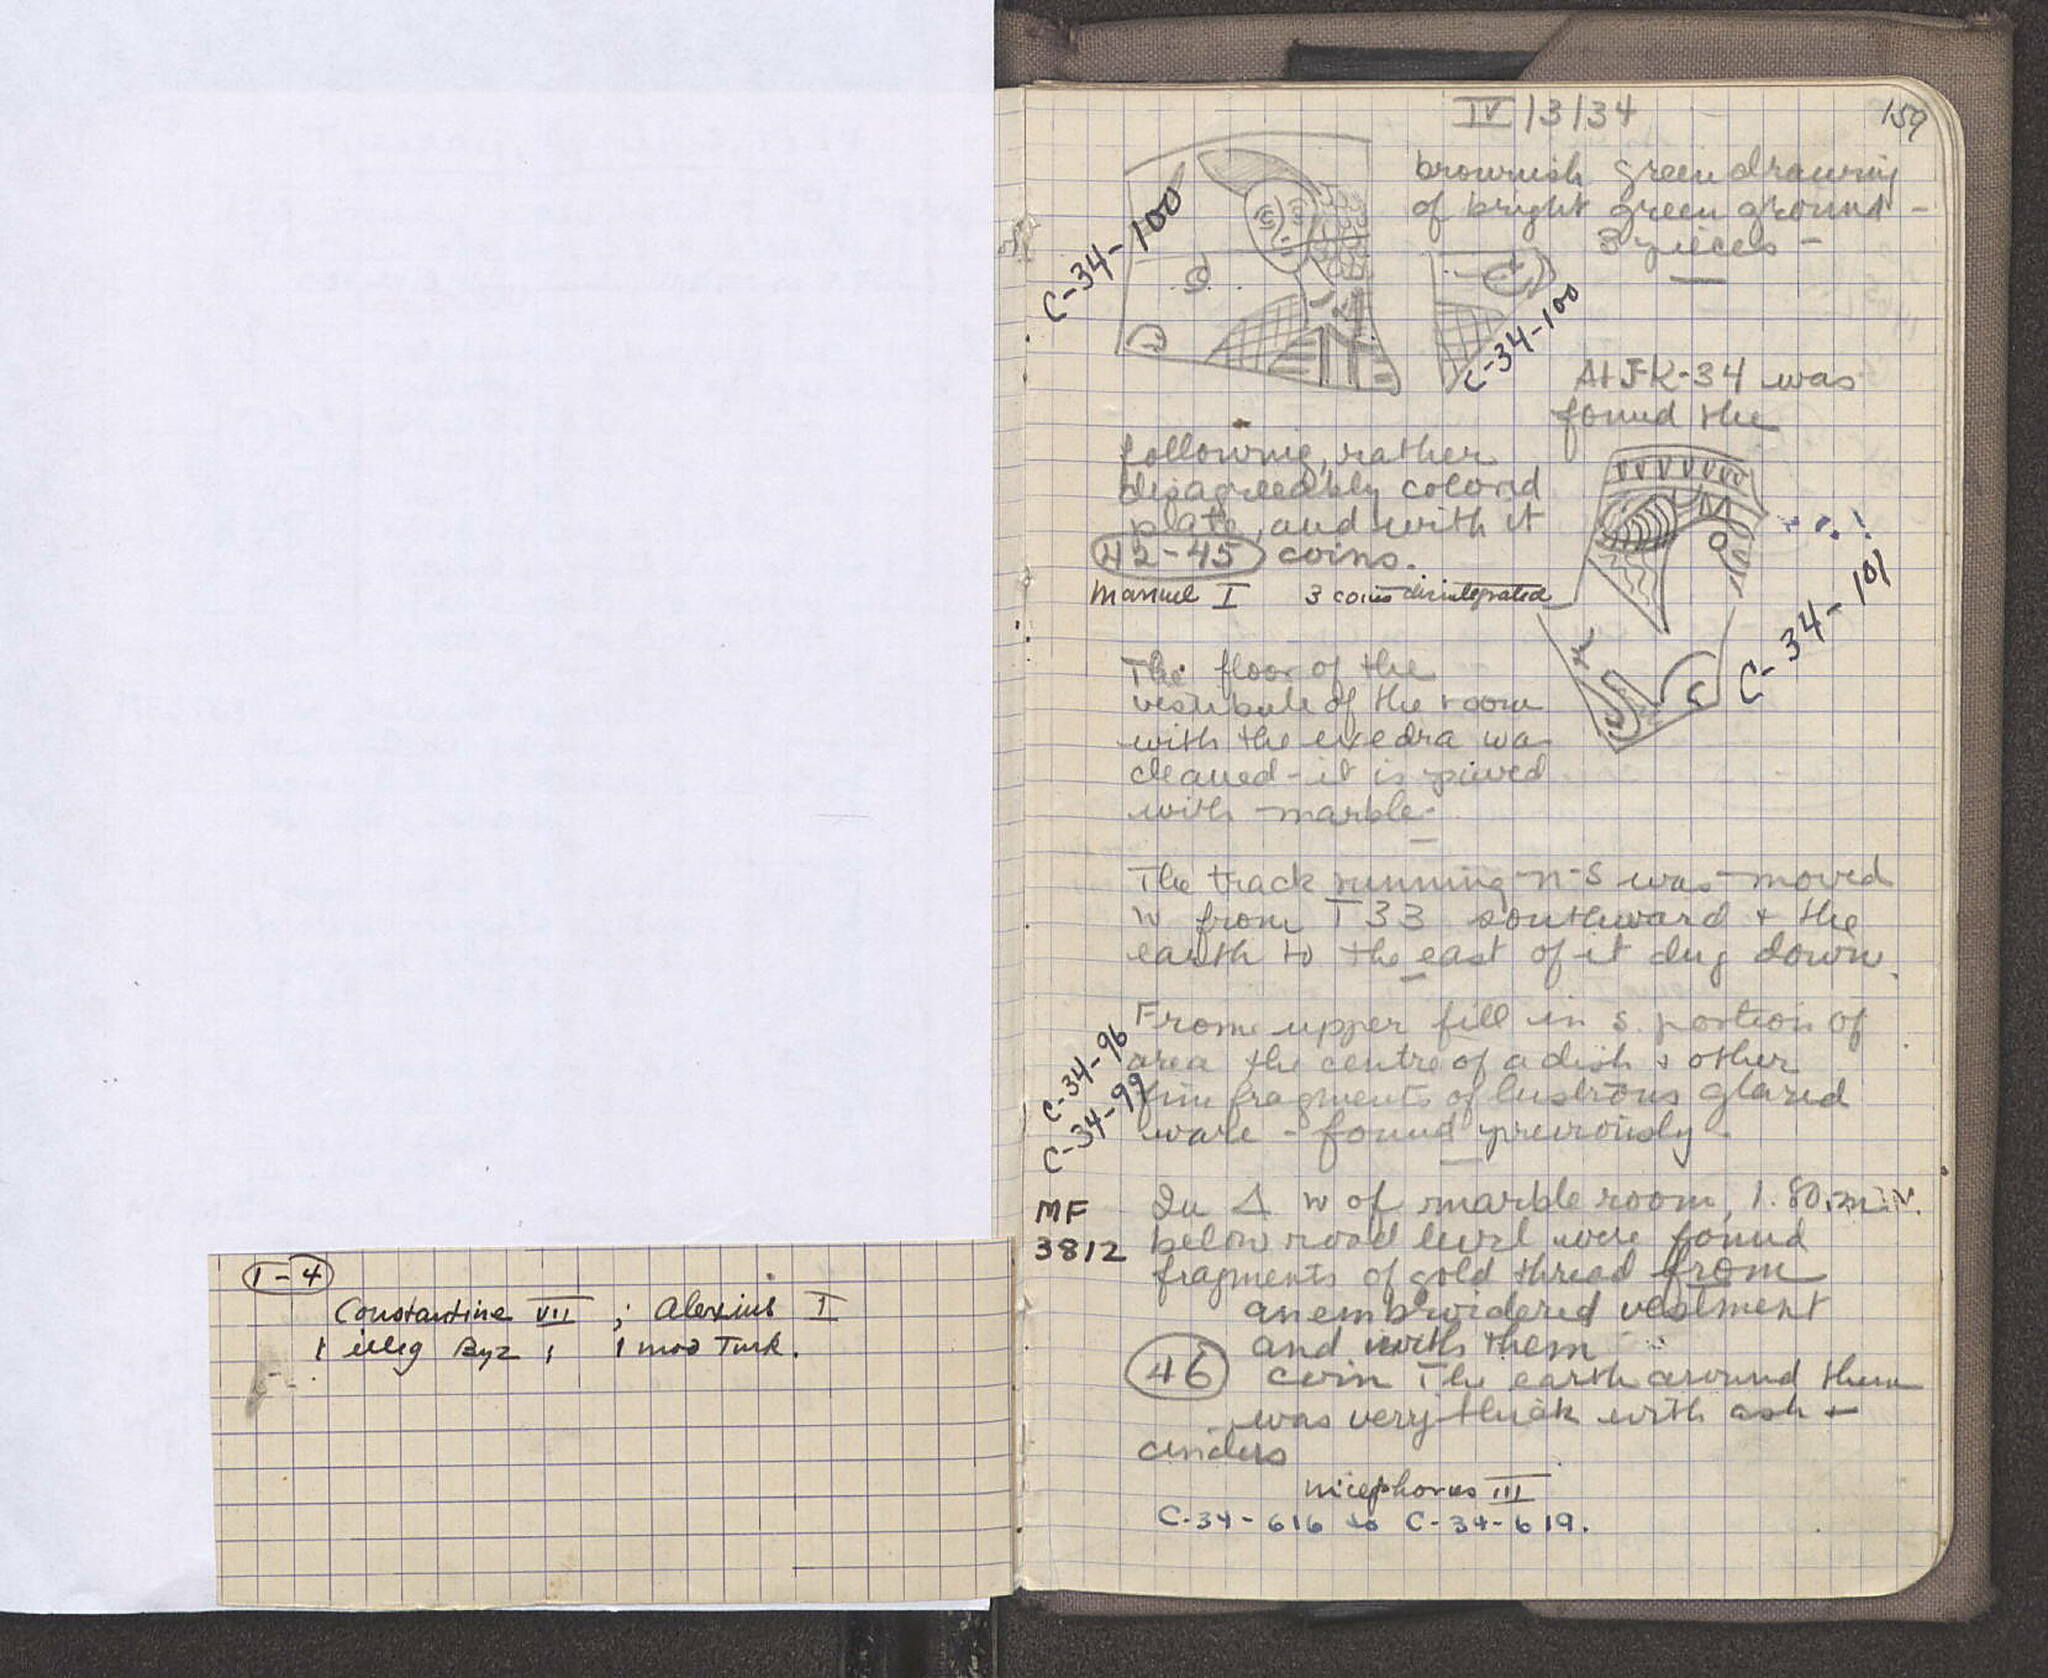 1-4
Constantine VII ; Alexius I
1 illeg Byz ; 1 mod Turk.
IV/3/34
159
brownish green drawing
of bright green ground -
3 pieces -
C-34-100
C-34-100
At J-K-34 was
found the
following, rather
disagreeably colored
plate, and with it
42-45 coins.
Manuel I 3 coins disintegrated
C-34-101
The floor of the
vestibule of the room
with the exedra wa
cleaned - it is pived
with marble -
The track running N-S was moved
W from T 33 southward + the
earth to the east of it dug down.
From upper fill in S. portion of
area the centre of a dish + other
fine fragments of lustrous glazed
ware - found previously -
C-34-96
C-34-99
MF
3812
In Δ W of marble room, 1.80 m
below road level were found
fragments of gold thread from
an embroidered vestment
and with them
46 coin The earth around them
was very thick with ash +
cinders
Nicephorus III
C-34-616 to C-34-619.